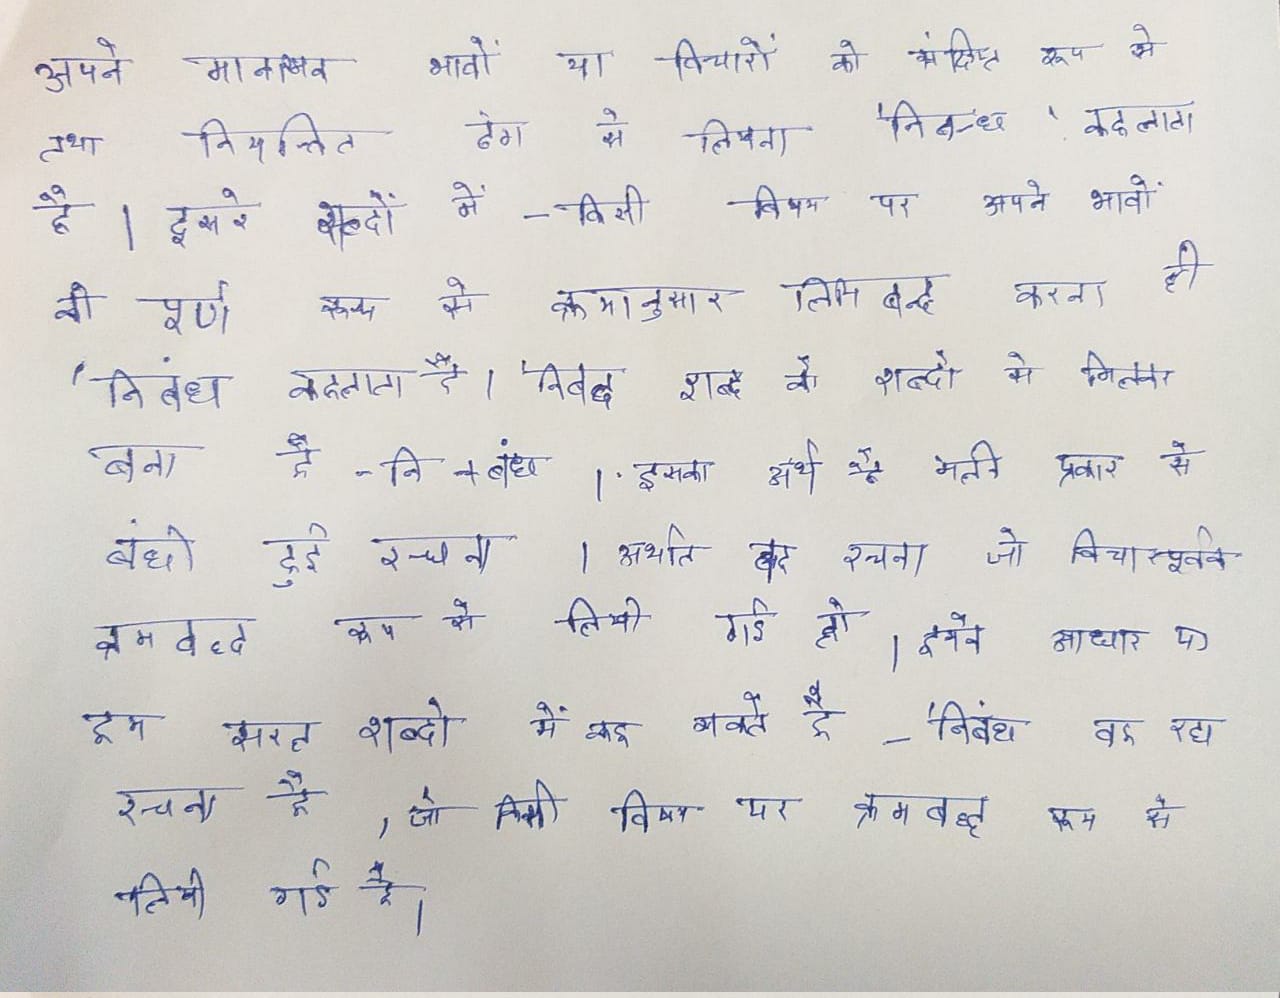 अपने मानसिक भावों या विचारों को संक्षिप्त रूप से
तथा नियन्त्रित ढंग से लिखना 'निबन्ध' कहलाता
है | दूसरे शब्दों में - किसी विषय पर अपने भावों
को पूर्ण रूप से क्रमानुसार लिपिबद्ध करना ही
'निबंध कहलाता है | 'निबंध शब्द दो शब्दों से मिलकर
बना है - नि + बंध | इसका अर्थ है भली प्रकार से
बंधी हुई रचना | अर्थात वह रचना जो विचारपूर्वक
क्रमबद्ध रूप से लिखी गई हो | इसके आधार पर
हम सरल शब्दो में कह सकते है - 'निबंध वह गद्य
रचना है , जो किसी विषय पर क्रमबद्ध रूप से
लिखी गई है |